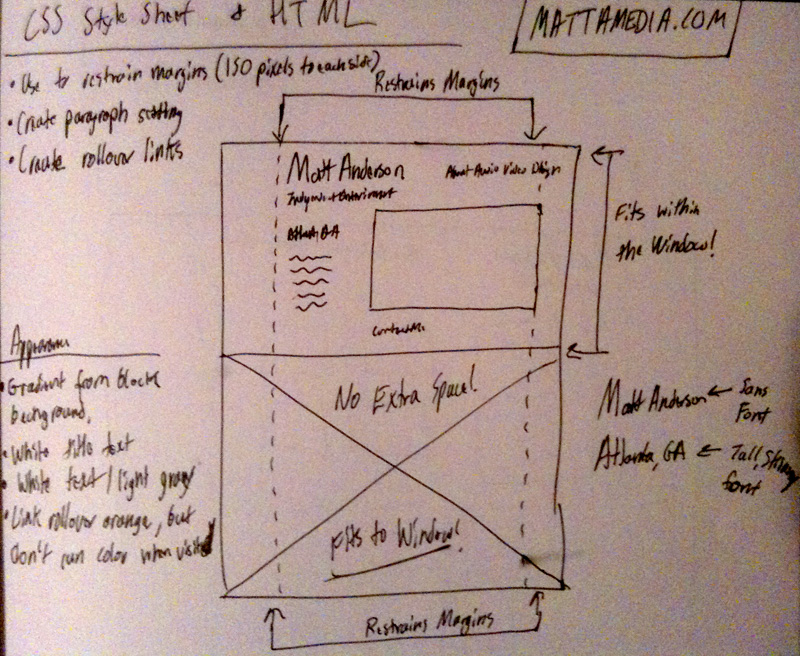 CSS Style Sheet & HTML
MATTAMEDIA.COM
• Use to restrain margins (150 pixels to each side)
• Create paragraph setting
• Create rollover links
Restrains Margins
Matt Anderson
About Audio Video Design
Atlanta, GA
Contact Me
Fits within
the Window!
No Extra Space!
Fits to Window!
Restrains Margins
Appearance
• Gradient from black
background,
• White title text
• White text/light gray
• Link rollover orange, but
Don't turn color when visited
Matt Anderson ← Sans
Font
Atlanta, GA ← Tall, Strong
font